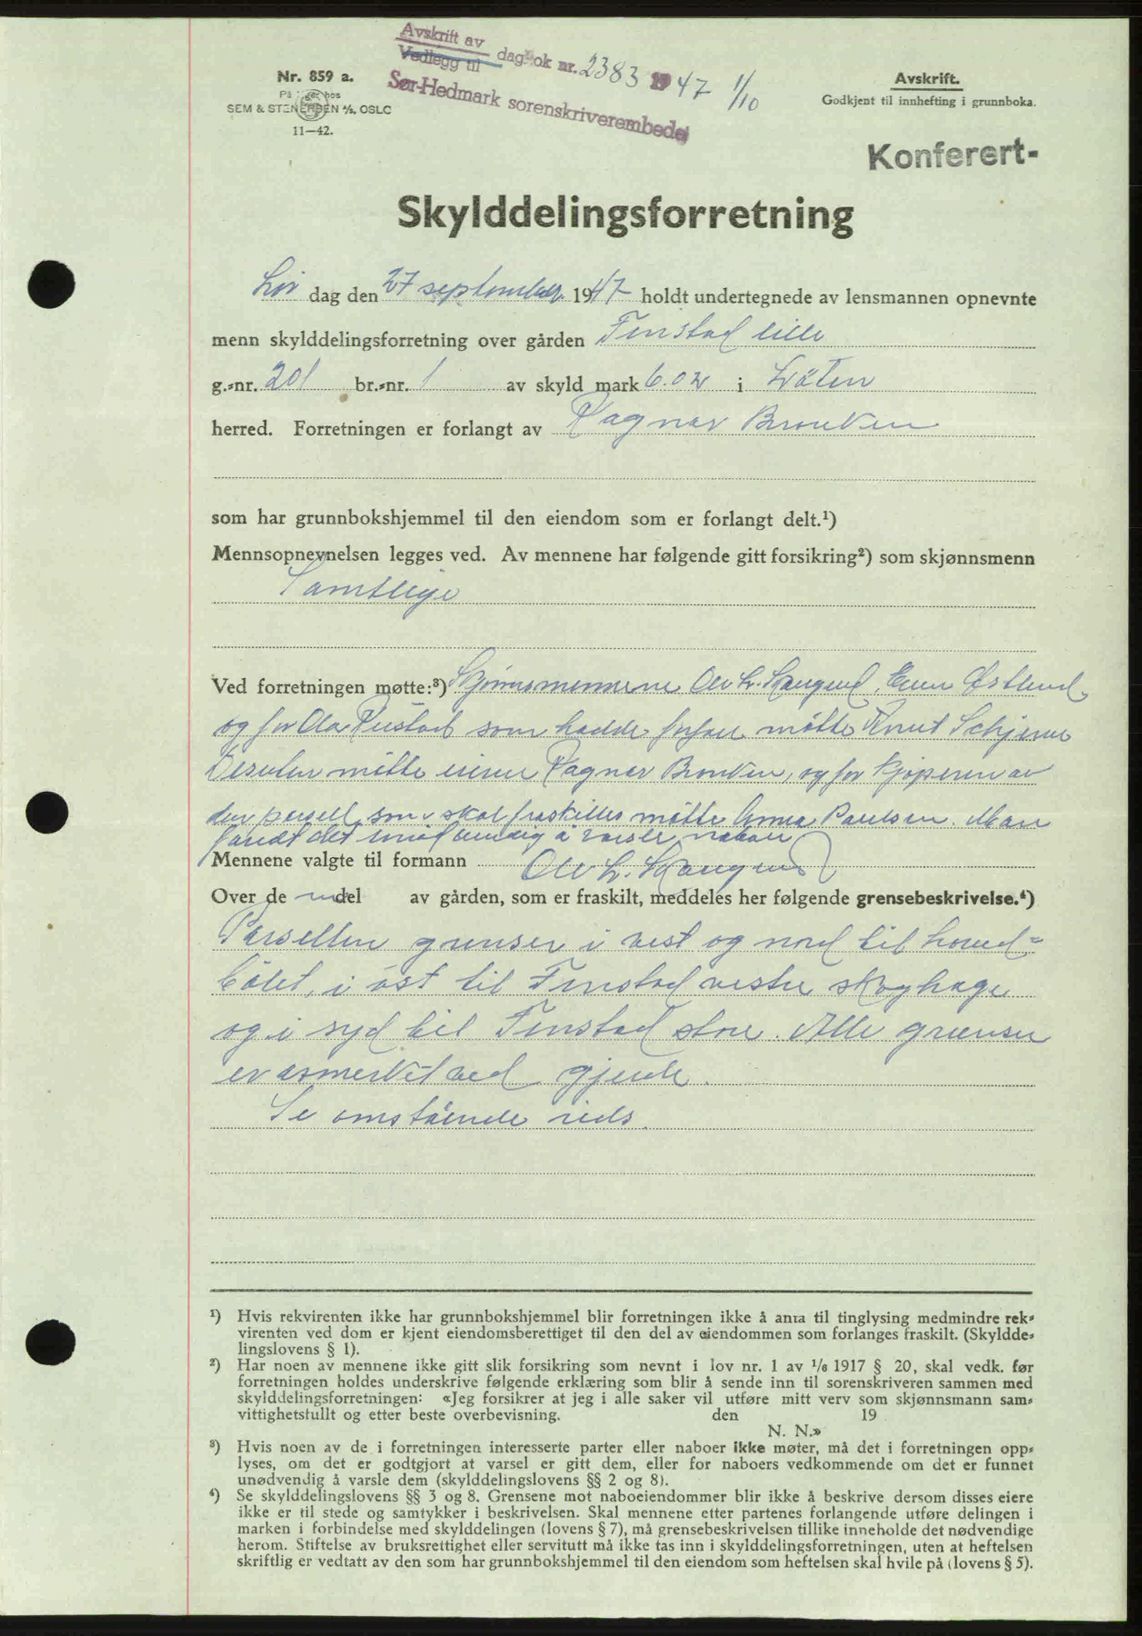 Avskrift av
Vedlegg til dagbok nr. 2383 1947 1/10
Sør-Hedmark sorenskriverembede
Nr. 859 a.
På lager hos
SEM & STENERSEN A/S, OSLO
11—42.
Avskrift.
Godkjent til innhefting i grunnboka.
Konferert-
Skylddelingsforretning
Lør dag den 27 september 1947 holdt undertegnede av lensmannen opnevnte
menn skylddelingsforretning over gården Finstad lille
g.-nr. 201 br.-nr. 1 av skyld mark 6.02 i Løten
herred. Forretningen er forlangt av Ragnar Bronken
som har grunnbokshjemmel til den eiendom som er forlangt delt.¹)
Mennsopnevnelsen legges ved. Av mennene har følgende gitt forsikring²) som skjønnsmenn
Samtlige
Ved forretningen møtte:³) Skjønnsmennene Ole L. Skaugerud, Even Østlund
og for Ola Rustad som hadde forfall møtte Knut Schjerve
Desuten møtte eieren Ragnar Bronken, og for kjøperen av
den parsell som skal fraskilles møtte Anna Paulsen. Man
fandt det unødvendig å varsle naboer
Mennene valgte til formann Ole L. Skaugerud
Over de n del av gården, som er fraskilt, meddeles her følgende grensebeskrivelse.⁴)
Parsellen grenser i vest og nord til hoved-
bølet, i øst til Finstad vestre skoghage
og i syd til Finstad store. Alle grenser
er avmerket ved gjerde.
Se omstående side.
¹) Hvis rekvirenten ikke har grunnbokshjemmel blir forretningen ikke å anta til tinglysing medmindre rek-
virenten ved dom er kjent eiendomsberettiget til den del av eiendommen som forlanges fraskilt. (Skyldde-
lingslovens § 1).
²) Har noen av mennene ikke gitt slik forsikring som nevnt i lov nr. 1 av 1/6 1917 § 20, skal vedk. før
forretningen holdes underskrive følgende erklæring som blir å sende inn til sorenskriveren sammen med
skylddelingsforretningen: «Jeg forsikrer at jeg i alle saker vil utføre mitt verv som skjønnsmann sam-
vittighetsfullt og etter beste overbevisning. den 19
N. N.»
³) Hvis noen av de i forretningen interesserte parter eller naboer ikke møter, må det i forretningen opp-
lyses, om det er godtgjort at varsel er gitt dem, eller for naboers vedkommende om det er funnet
unødvendig å varsle dem (skylddelingslovens §§ 2 og 8).
⁴) Se skylddelingslovens §§ 3 og 8. Grensene mot naboeiendommer blir ikke å beskrive dersom disses eiere
ikke er til stede og samtykker i beskrivelsen. Skal mennene etter partenes forlangende utføre delingen i
marken i forbindelse med skylddelingen (lovens § 7), må grensebeskrivelsen tillike inneholde det nødvendige
herom. Stiftelse av bruksrettighet eller servitutt må ikke tas inn i skylddelingsforretningen, uten at heftelsen
skriftlig er vedtatt av den som har grunnbokshjemmel til den eiendom som heftelsen skal hvile på (lovens § 5).